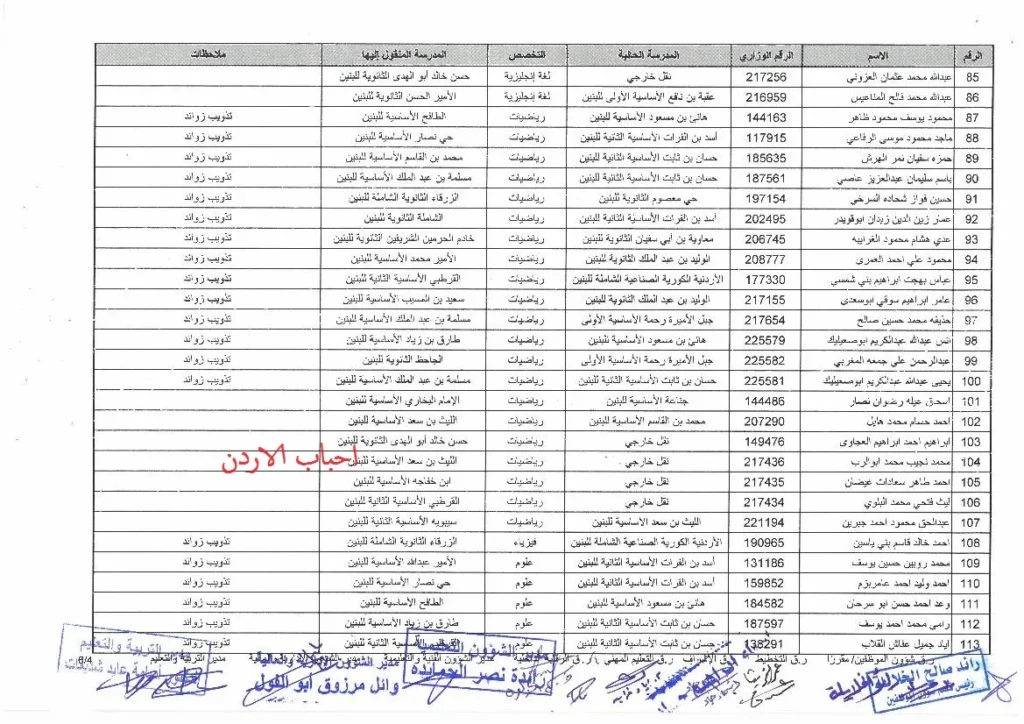 الرقم الاسم الرقم الوزاري المدرسة الحالية التخصص المدرسة المنقول إليها ملاحظات
85 عبدالله محمد عثمان العزوني 217256 نقل خارجي لغة إنجليزية حسن خالد أبو الهدى الثانوية للبنين
86 عبدالله محمد فالح المناعيس 216959 عقبة بن نافع الأساسية الأولى للبنين لغة إنجليزية الأمير الحسن الثانوية للبنين
87 محمود يوسف محمود ظاهر 144163 هانئ بن مسعود الأساسية للبنين رياضيات الطافح الأساسية للبنين تذويب زوائد
88 ماجد محمود موسى الرفاعي 117915 أسد بن الفرات الأساسية الثانية للبنين رياضيات حي نصار الأساسية للبنين تذويب زوائد
89 حمزه سفيان نمر الهرش 185635 حسان بن ثابت الأساسية الثانية للبنين رياضيات محمد بن القاسم الأساسية للبنين تذويب زوائد
90 باسم سليمان عبدالعزيز عاصي 187561 حسان بن ثابت الأساسية الثانية للبنين رياضيات مسلمة بن عبد الملك الأساسية للبنين تذويب زوائد
91 حسين فواز شحاده السرخي 197154 حي معصوم الثانوية للبنين رياضيات الزرقاء الثانوية الشاملة للبنين تذويب زوائد
92 عمار زين الدين زيدان ابوقويدر 202495 أسد بن الفرات الأساسية الثانية للبنين رياضيات الشاملة الثانوية للبنين تذويب زوائد
93 عدي هشام محمود الغرايبه 206745 معاوية بن أبي سفيان الثانوية للبنين رياضيات خادم الحرمين الشريفين الثانوية للبنين تذويب زوائد
94 محمود علي احمد العمري 208777 الوليد بن عبد الملك الثانوية للبنين رياضيات الأمير محمد الأساسية للبنين تذويب زوائد
95 عباس بهجت ابراهيم بني شمسي 177330 الأردنية الكورية الصناعية الشاملة للبنين رياضيات القرطبي الأساسية الثانية للبنين تذويب زوائد
96 عامر ابراهيم سوقي ابوسعدى 217155 الوليد بن عبد الملك الثانوية للبنين رياضيات سعيد بن المسيب الأساسية للبنين تذويب زوائد
97 حذيفه محمد حسين صالح 217654 جبل الأميرة رحمة الأساسية الأولى رياضيات مسلمة بن عبد الملك الأساسية للبنين تذويب زوائد
98 انس عبدالله عبدالكريم ابوصعيليك 225579 هانئ بن مسعود الأساسية للبنين رياضيات طارق بن زياد الأساسية للبنين تذويب زوائد
99 عبدالرحمن علي جمعه المغربي 225582 جبل الأميرة رحمة الأساسية الأولى رياضيات الجاحظ الثانوية للبنين تذويب زوائد
100 يحيى عبدالله عبدالكريم ابوصعيليك 225581 حسان بن ثابت الأساسية الثانية للبنين رياضيات مسلمة بن عبد الملك الأساسية للبنين تذويب زوائد
101 اسحق عيله رضوان نصار 144486 جناعة الأساسية للبنين رياضيات الإمام البخاري الأساسية للبنين
102 احمد حسام محمد هايل 207290 محمد بن القاسم الأساسية للبنين رياضيات الليث بن سعد الأساسية للبنين
103 ابراهيم احمد ابراهيم العجاوي 149476 نقل خارجي رياضيات حسن خالد أبو الهدى الثانوية للبنين
104 محمد نجيب محمد ابوالرب 217436 نقل خارجي رياضيات الليث بن سعد الأساسية للبنين
احباب الاردن
105 احمد طاهر سعادات غيضان 217435 نقل خارجي رياضيات ابن خفاجه الأساسية للبنين
106 ليث فتحي محمد البلوي 217434 نقل خارجي رياضيات القرطبي الأساسية الثانية للبنين
107 عبدالحق محمود احمد جبرين 221194 الليث بن سعد الأساسية للبنين رياضيات سيبويه الأساسية الثانية للبنين
108 احمد خالد قاسم بني ياسين 190965 الأردنية الكورية الصناعية الشاملة للبنين فيزياء الزرقاء الثانوية الشاملة للبنين تذويب زوائد
109 محمد روبين حسين يوسف 131186 أسد بن الفرات الأساسية الثانية للبنين علوم الأمير عبدالله الأساسية للبنين تذويب زوائد
110 احمد وليد احمد عامريزم 159852 أسد بن الفرات الأساسية الثانية للبنين علوم حي نصار الأساسية للبنين تذويب زوائد
111 وعد احمد حسن ابو سرحان 184582 هانئ بن مسعود الأساسية للبنين علوم الطافح الأساسية للبنين تذويب زوائد
112 رامي محمد احمد يوسف 187597 حسان بن ثابت الأساسية الثانية للبنين علوم طارق بن زياد الأساسية للبنين تذويب زوائد
113 اياد جميل عفاش القلاب 138291 حسان بن ثابت الأساسية الثانية للبنين علوم الثانية للبنين تذويب زوائد
ر.ق شؤون الموظفين/ مقررا ر.ق التخطيط ر.ق الإشراف ر.ق التعليم المهني مدير الشؤون الفنية والتعليمية مدير الشؤون الإدارية والمالية مدير التربية والتعليم 6/4
مدير الشؤون التعليمية
رائدة نصر الحمايدة
وائل مرزوق أبو الغول
مدير التربية والتعليم
رائد صالح الخلايلة